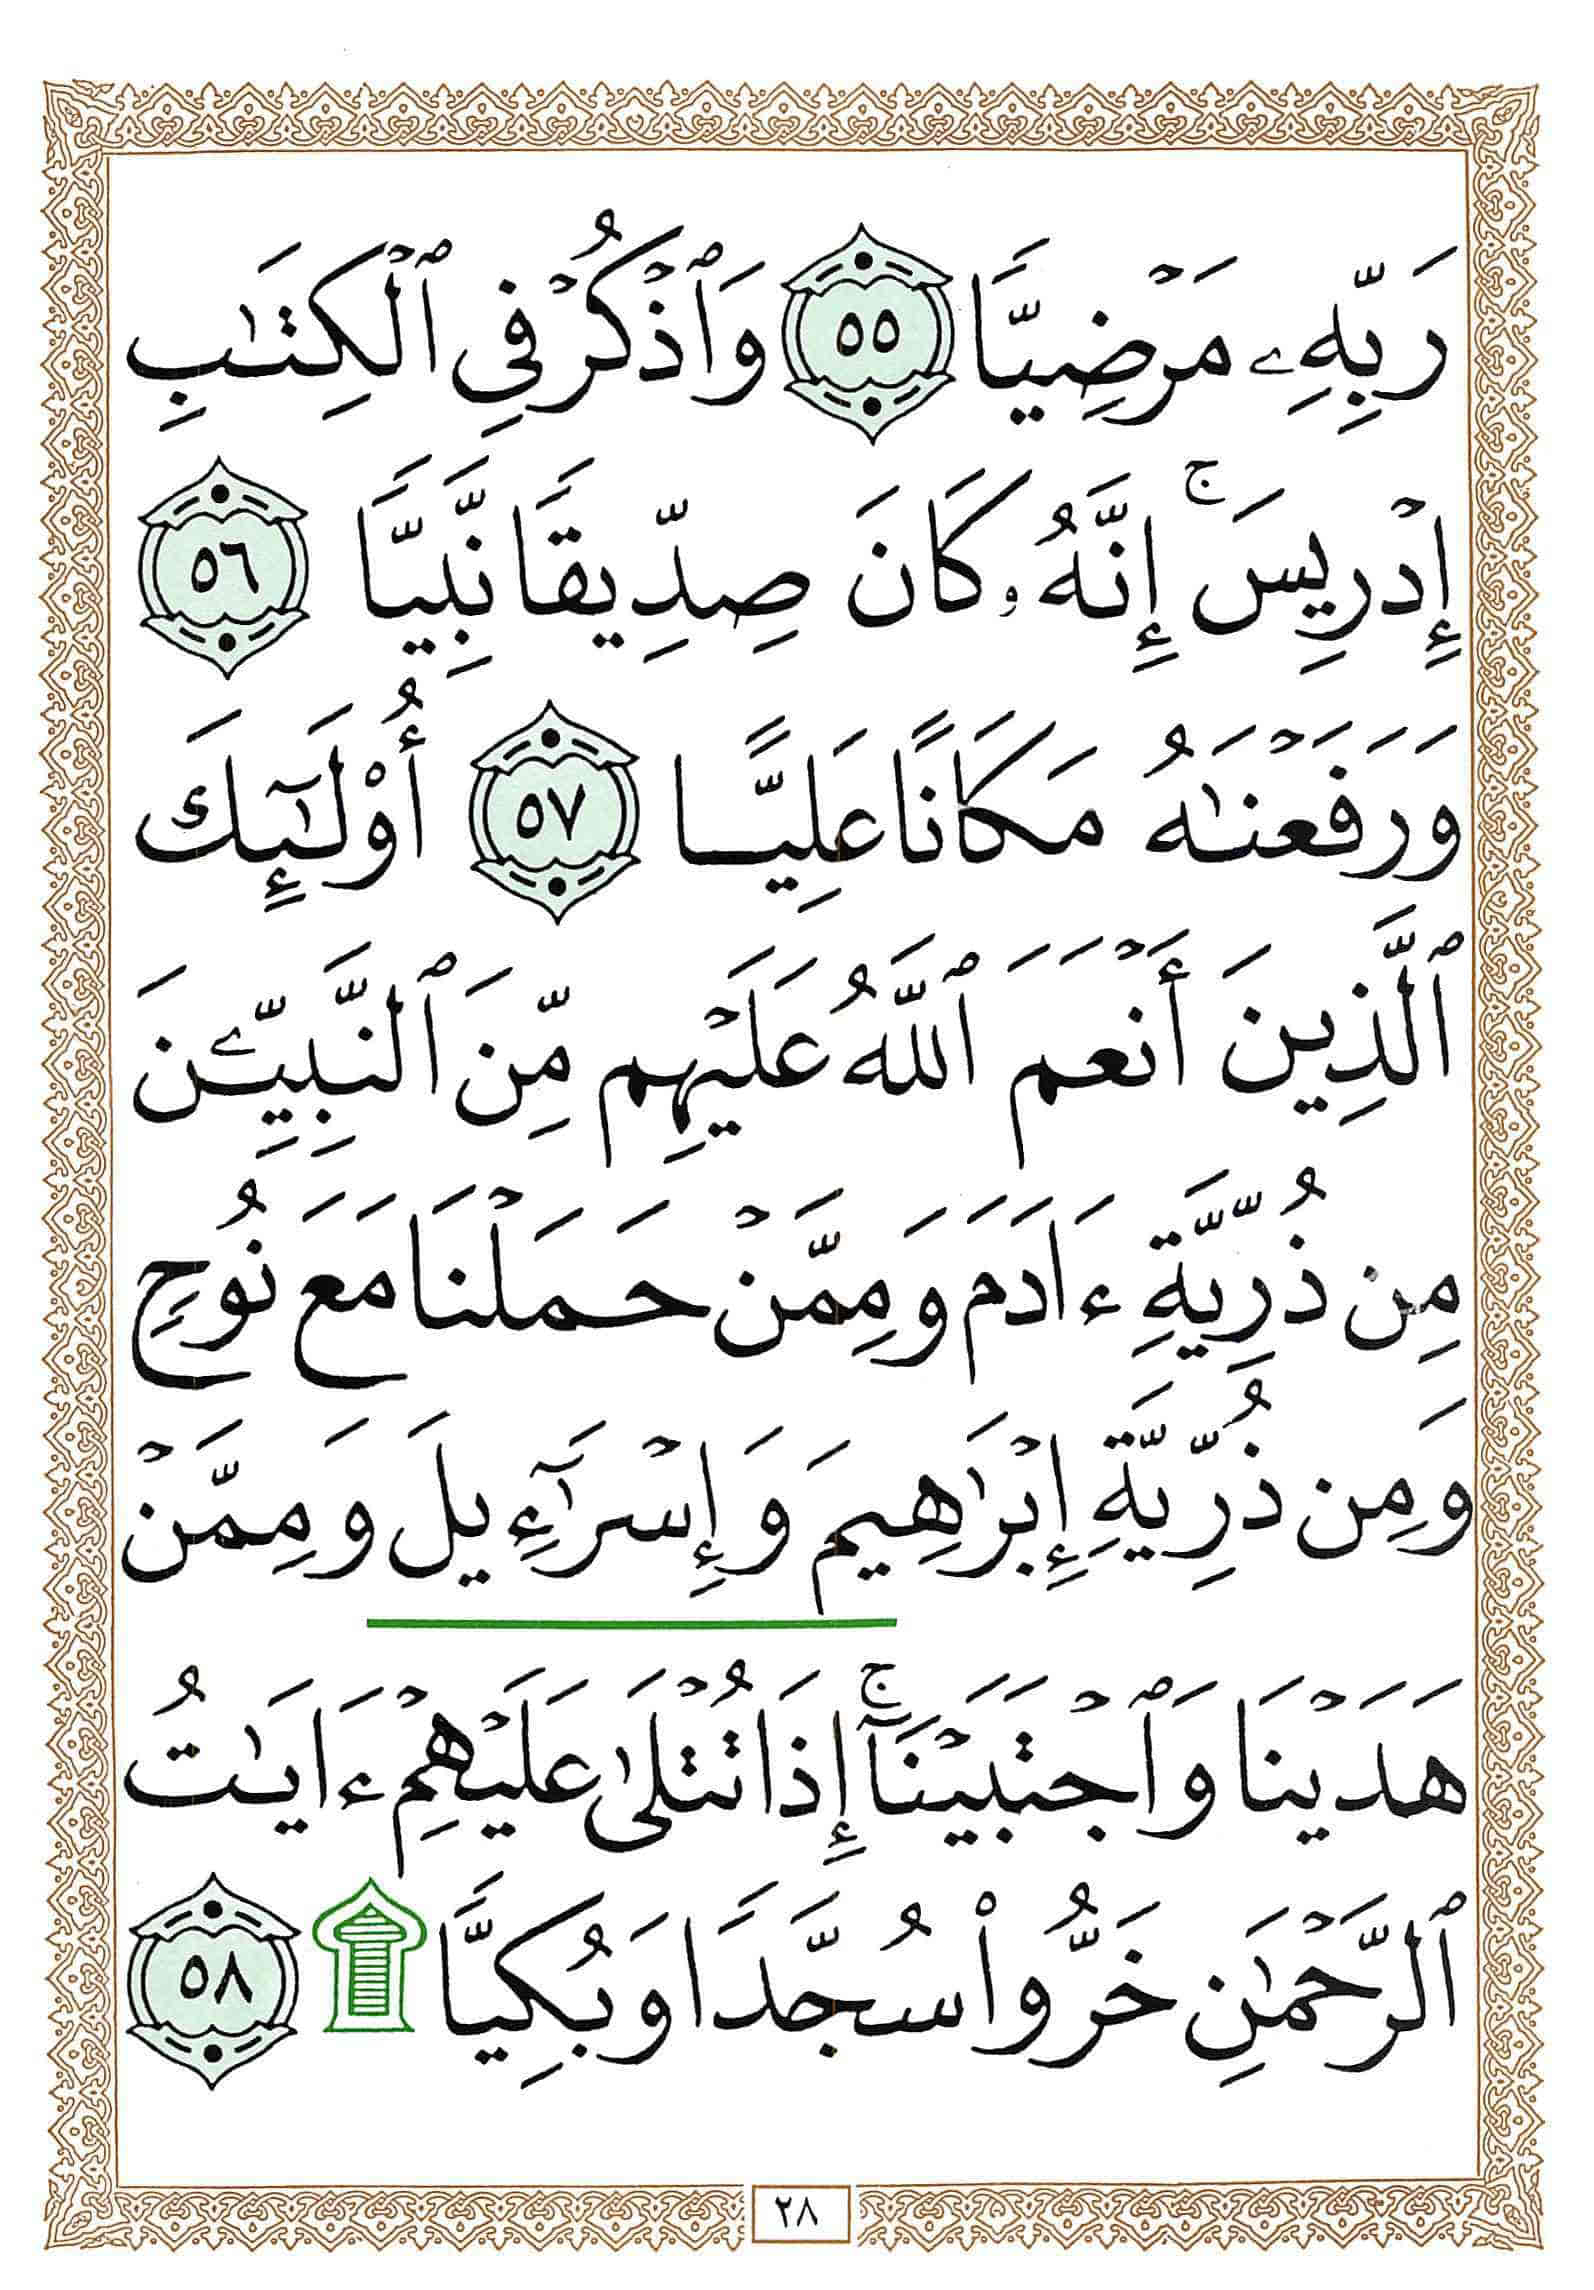 رَبِّهِۦ مَرۡضِيّٗا ٥٥ وَٱذۡكُرۡ فِي ٱلۡكِتَٰبِ
إِدۡرِيسَۚ إِنَّهُۥ كَانَ صِدِّيقٗا نَّبِيّٗا ٥٦
وَرَفَعۡنَٰهُ مَكَانًا عَلِيًّا ٥٧ أُوْلَٰٓئِكَ
ٱلَّذِينَ أَنۡعَمَ ٱللَّهُ عَلَيۡهِم مِّنَ ٱلنَّبِيِّـۧنَ
مِن ذُرِّيَّةِ ءَادَمَ وَمِمَّنۡ حَمَلۡنَا مَعَ نُوحٖ
وَمِن ذُرِّيَّةِ إِبۡرَٰهِيمَ وَإِسۡرَٰٓءِيلَ وَمِمَّنۡ
هَدَيۡنَا وَٱجۡتَبَيۡنَآۚ إِذَا تُتۡلَىٰ عَلَيۡهِمۡ ءَايَٰتُ
ٱلرَّحۡمَٰنِ خَرُّواْ سُجَّدٗا وَبُكِيّٗا ۩ ٥٨
٢٨